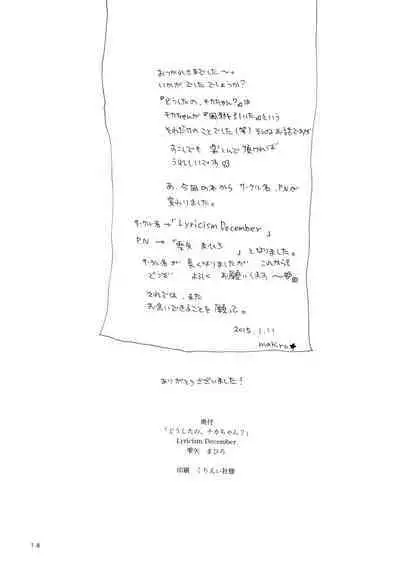 おつかれさまでした〜。
いかがでしたでしょうか?
『どうしたの、チカちゃん?』は
チカちゃんが『風邪を引いた』という
それだけのことでした(笑)そんなお話ですが
すこしでも 楽しんで頂ければ
うれしいです
あ、今回の本から サークル名、PNが
変わりました。
サークル名→「Lyricism December」
PN → 「雫矢 まひろ 」となりました。
サークル名が 長くなりましたが これからも
どうぞ よろしく お願いします〜
それでは、また
お会いできることを 願って。
2015.1.11
ありがとうございました!
奥付
「どうしたの、チカちゃん?」
Lyricism December
雫矢 まひろ
印刷 くりえい社様
18